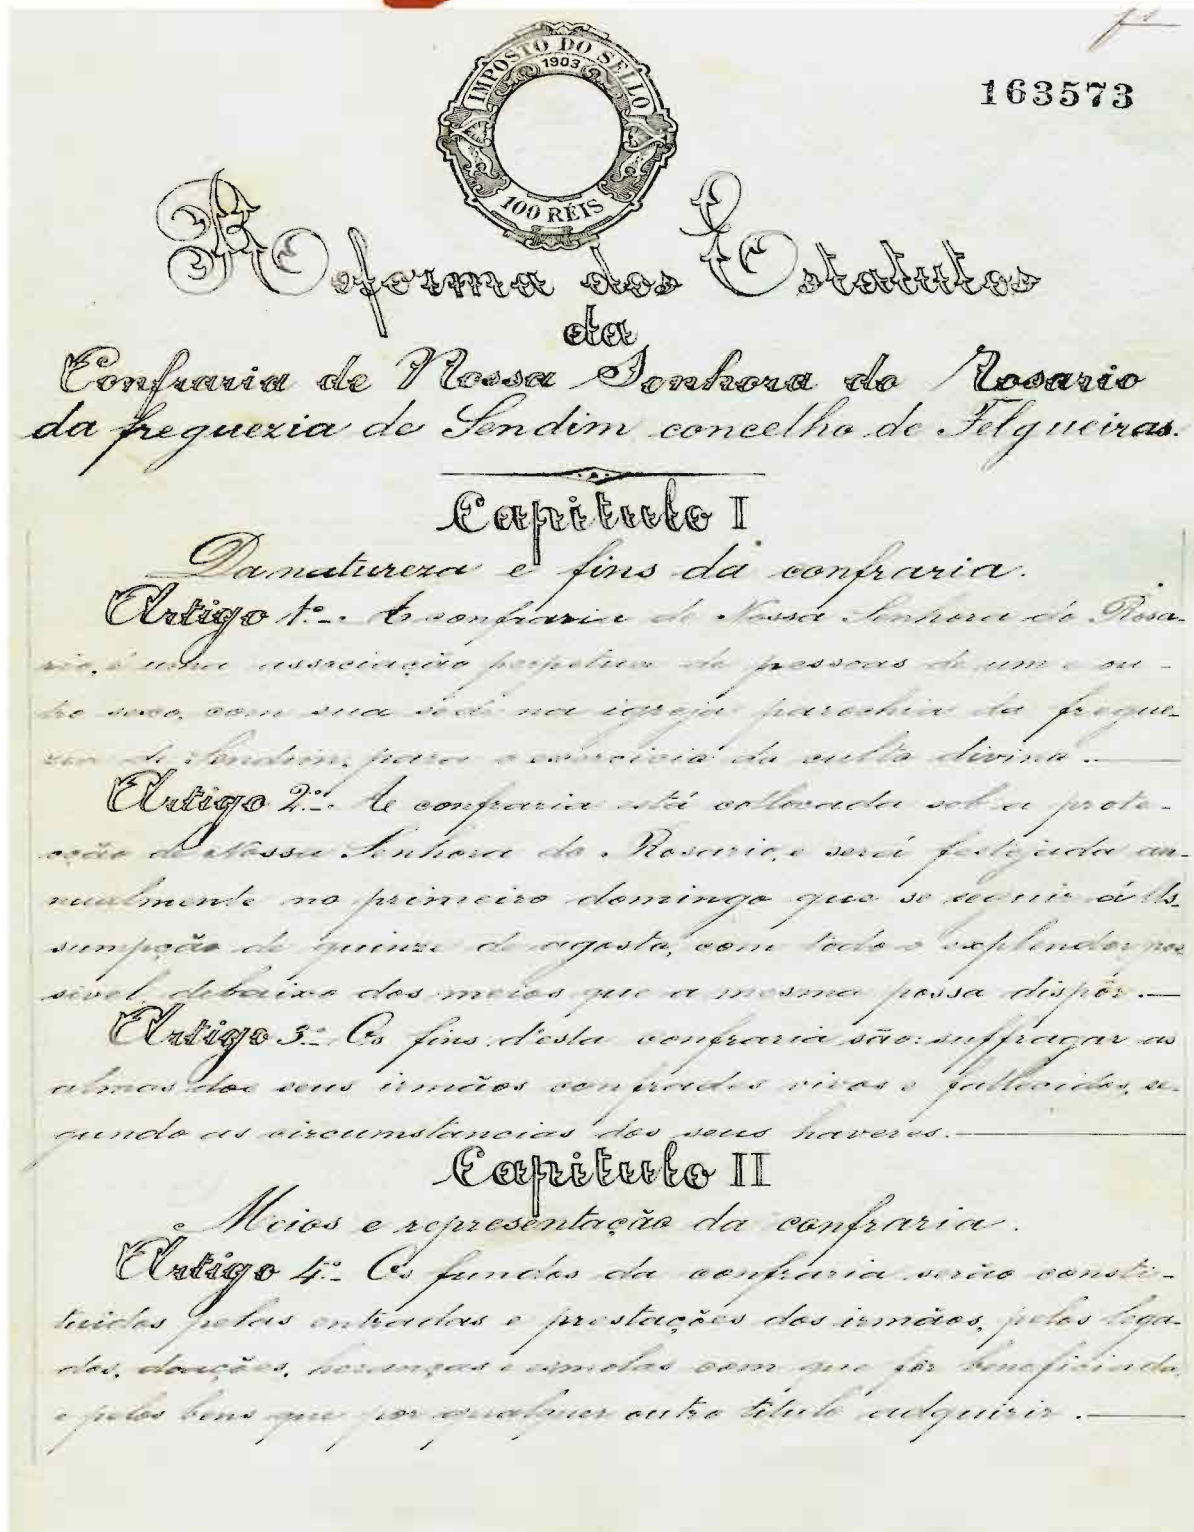 IMPOSTO DO SELLO
1903
100 RÉIS
163573
Reforma dos Estatutos
da
Confraria de Nossa Senhora do Rosario
da freguezia de Sendim concelho de Felgueiras.
Capitulo I
Da natureza e fins da confraria.
Artigo 1.º A confraria de Nossa Senhora do Rosa-
rio, é uma associação perpetua de pessoas de um e ou-
tro sexo, com sua séde na igreja parochia da fregue-
zia de Sendim, para o exercicio do culto divino.
Artigo 2.º A confraria está collocada sob a prote-
cção de Nossa Senhora do Rosario, e será festejada an-
nualmente no primeiro domingo que se seguir á As-
sumpção de quinze de agosto, com todo o explendor pos
sivel, debaixo dos meios que a mesma possa dispôr.
Artigo 3.º Os fins d'esta confraria são: suffragar as
almas dos seus irmãos confrades vivos e fallecidos, se-
gundo as circumstancias dos seus haveres.
Capitulo II
Meios e representação da confraria.
Artigo 4.º Os fundos da confraria serão consti-
tuidos pelas entradas e prestações dos irmãos, pelos lega-
dos, doações, heranças e esmolas com que fôr beneficiada,
e pelos bens que por qualquer outro titulo adquirir.